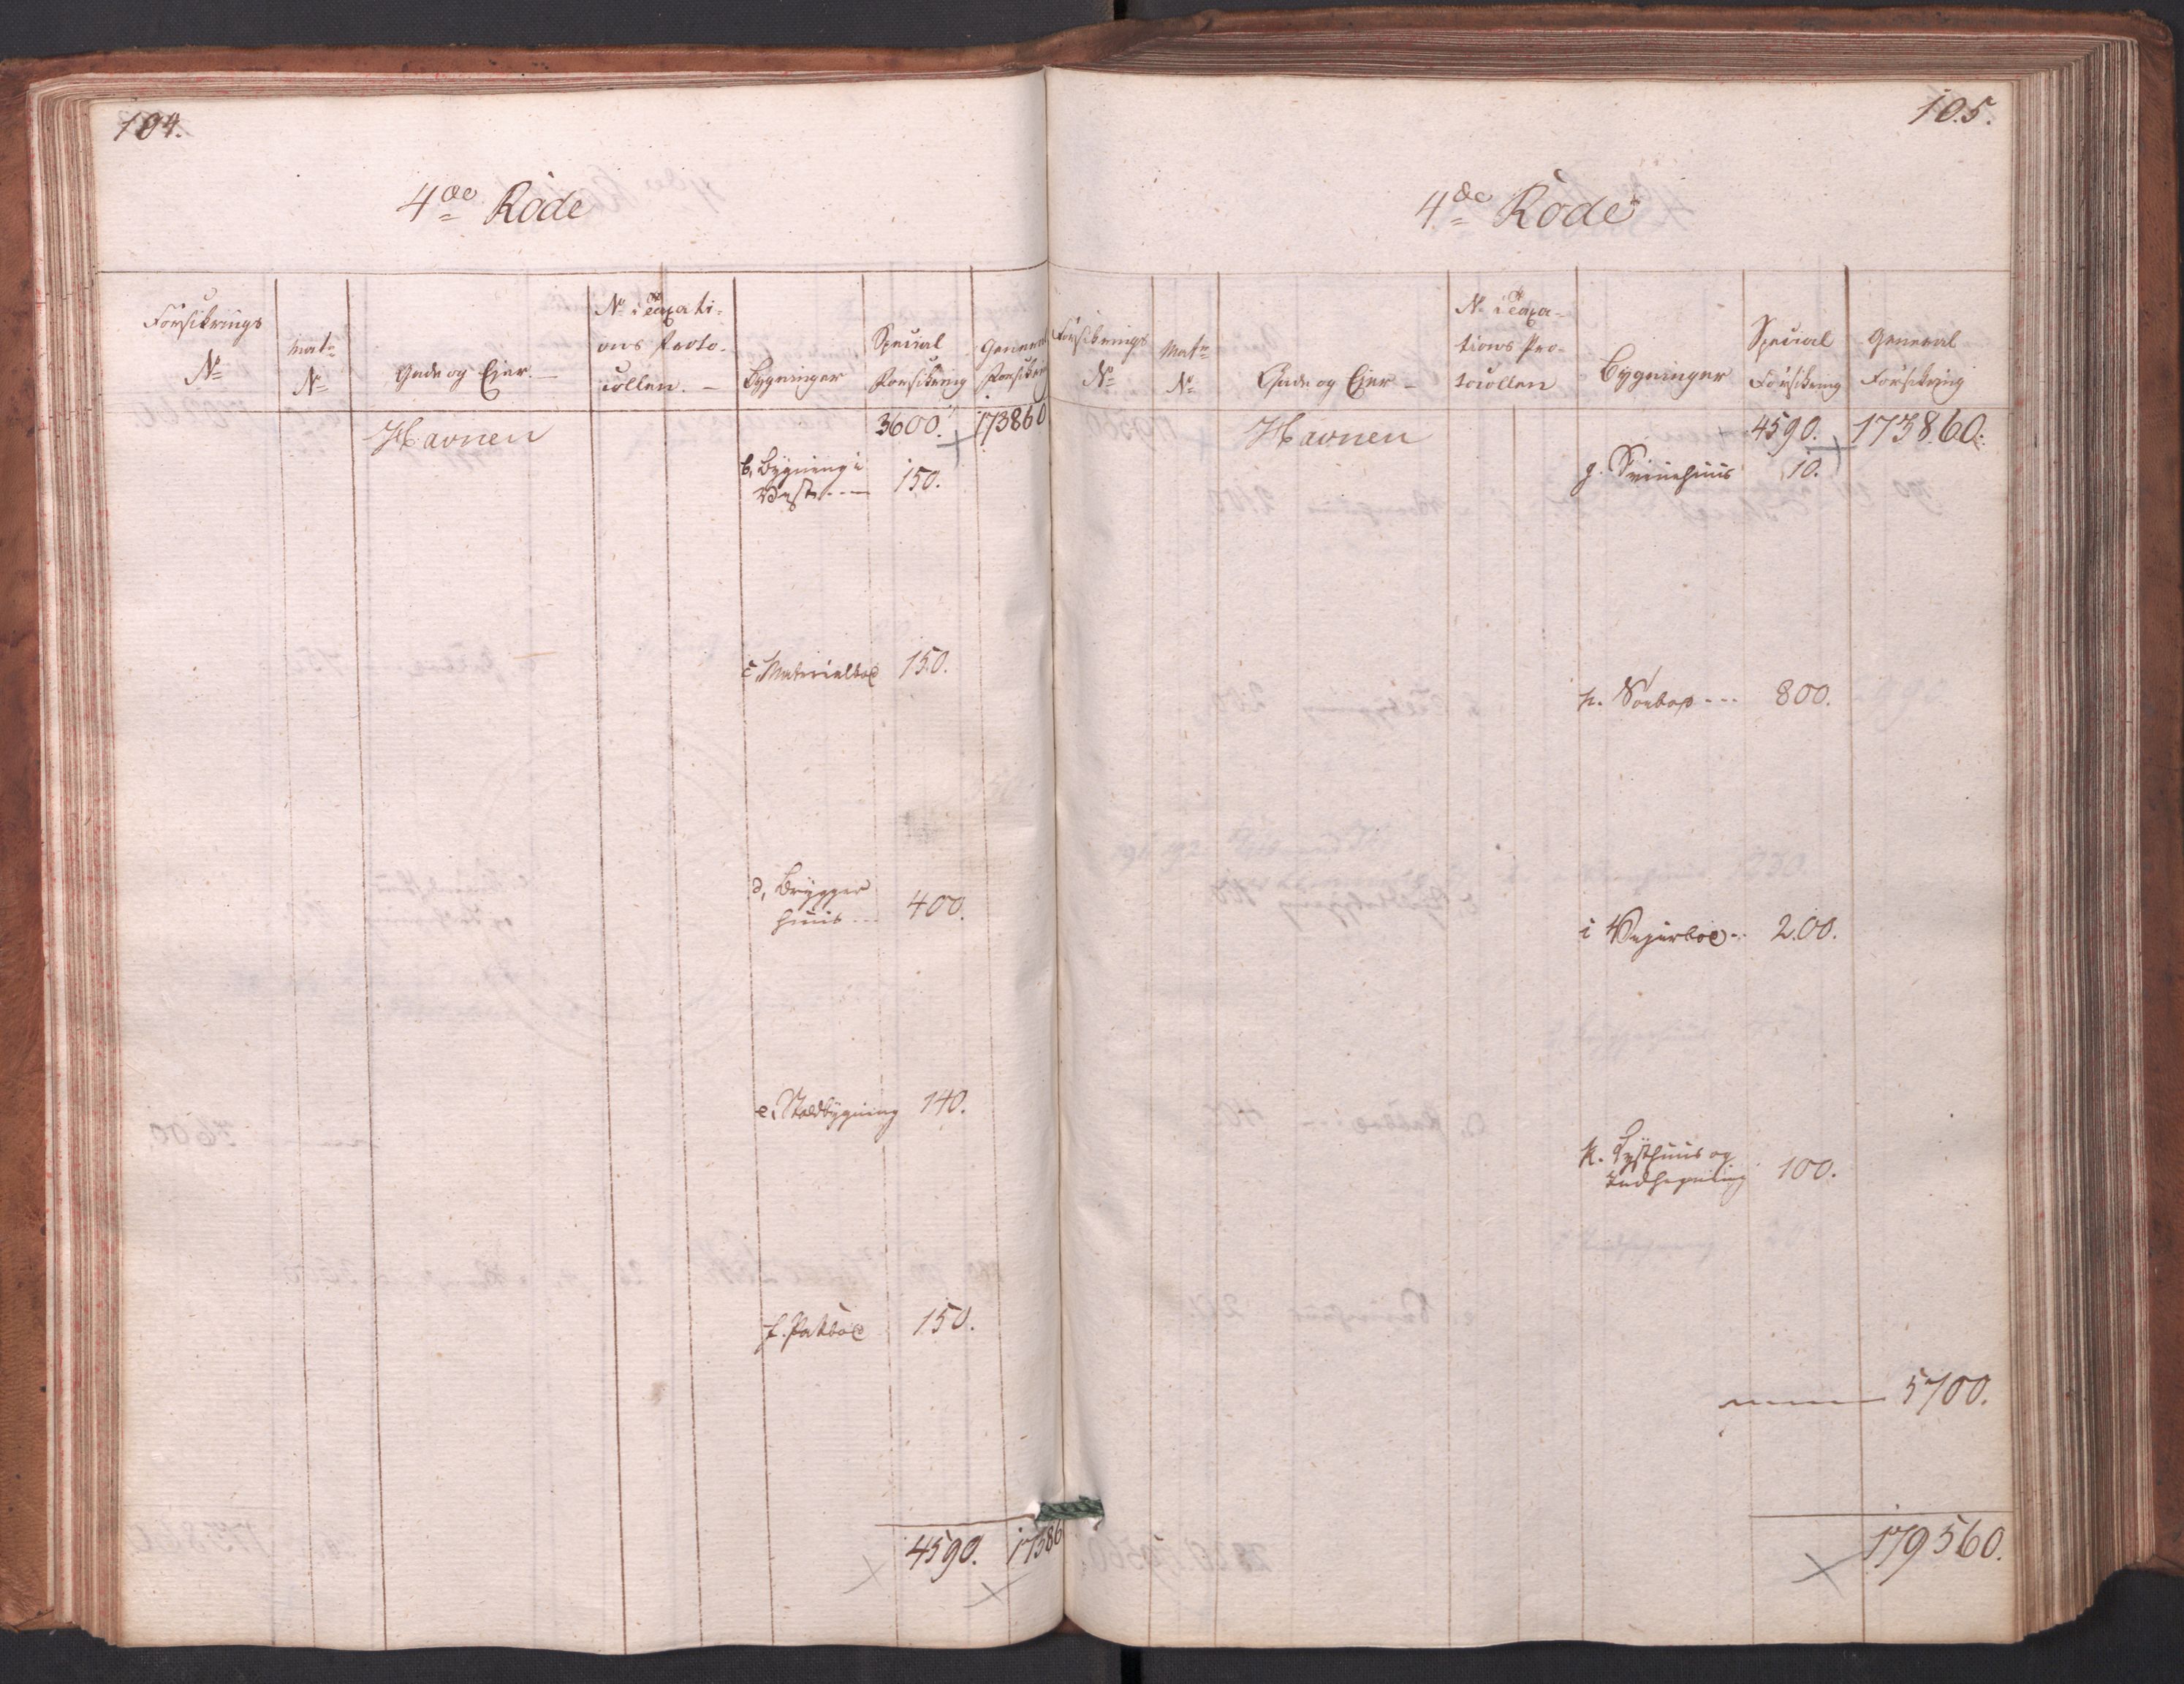 104.
4de Rode
Forsikrings
No
Matr
No
Gade og Ejer.
No i Taxati-
ons Proto-
collen.
Bygninger
Special
Forsikring
General
Forsikring
Havnen
3600. 173860
b, Bygning i
Vest --- 150.
c, Materialboe 150.
d, Brygger
huus --- 400.
e. Staldbygning 140.
f. Pakboe 150.
4590. 17386
105.
4de Rode
Forsikrings
No
Matr
No
Gade og Ejer
No i Taxa-
tions Pro-
tocollen
Bygninger
Special
Forsikring
General
Forsikring
Havnen
4590. 173860.
g. Sviinehuus 10.
h. Søeboe --- 800.
i Vejerboe -- 200.
k. Lysthuus og
Indhegning 100.
5700.
179560.